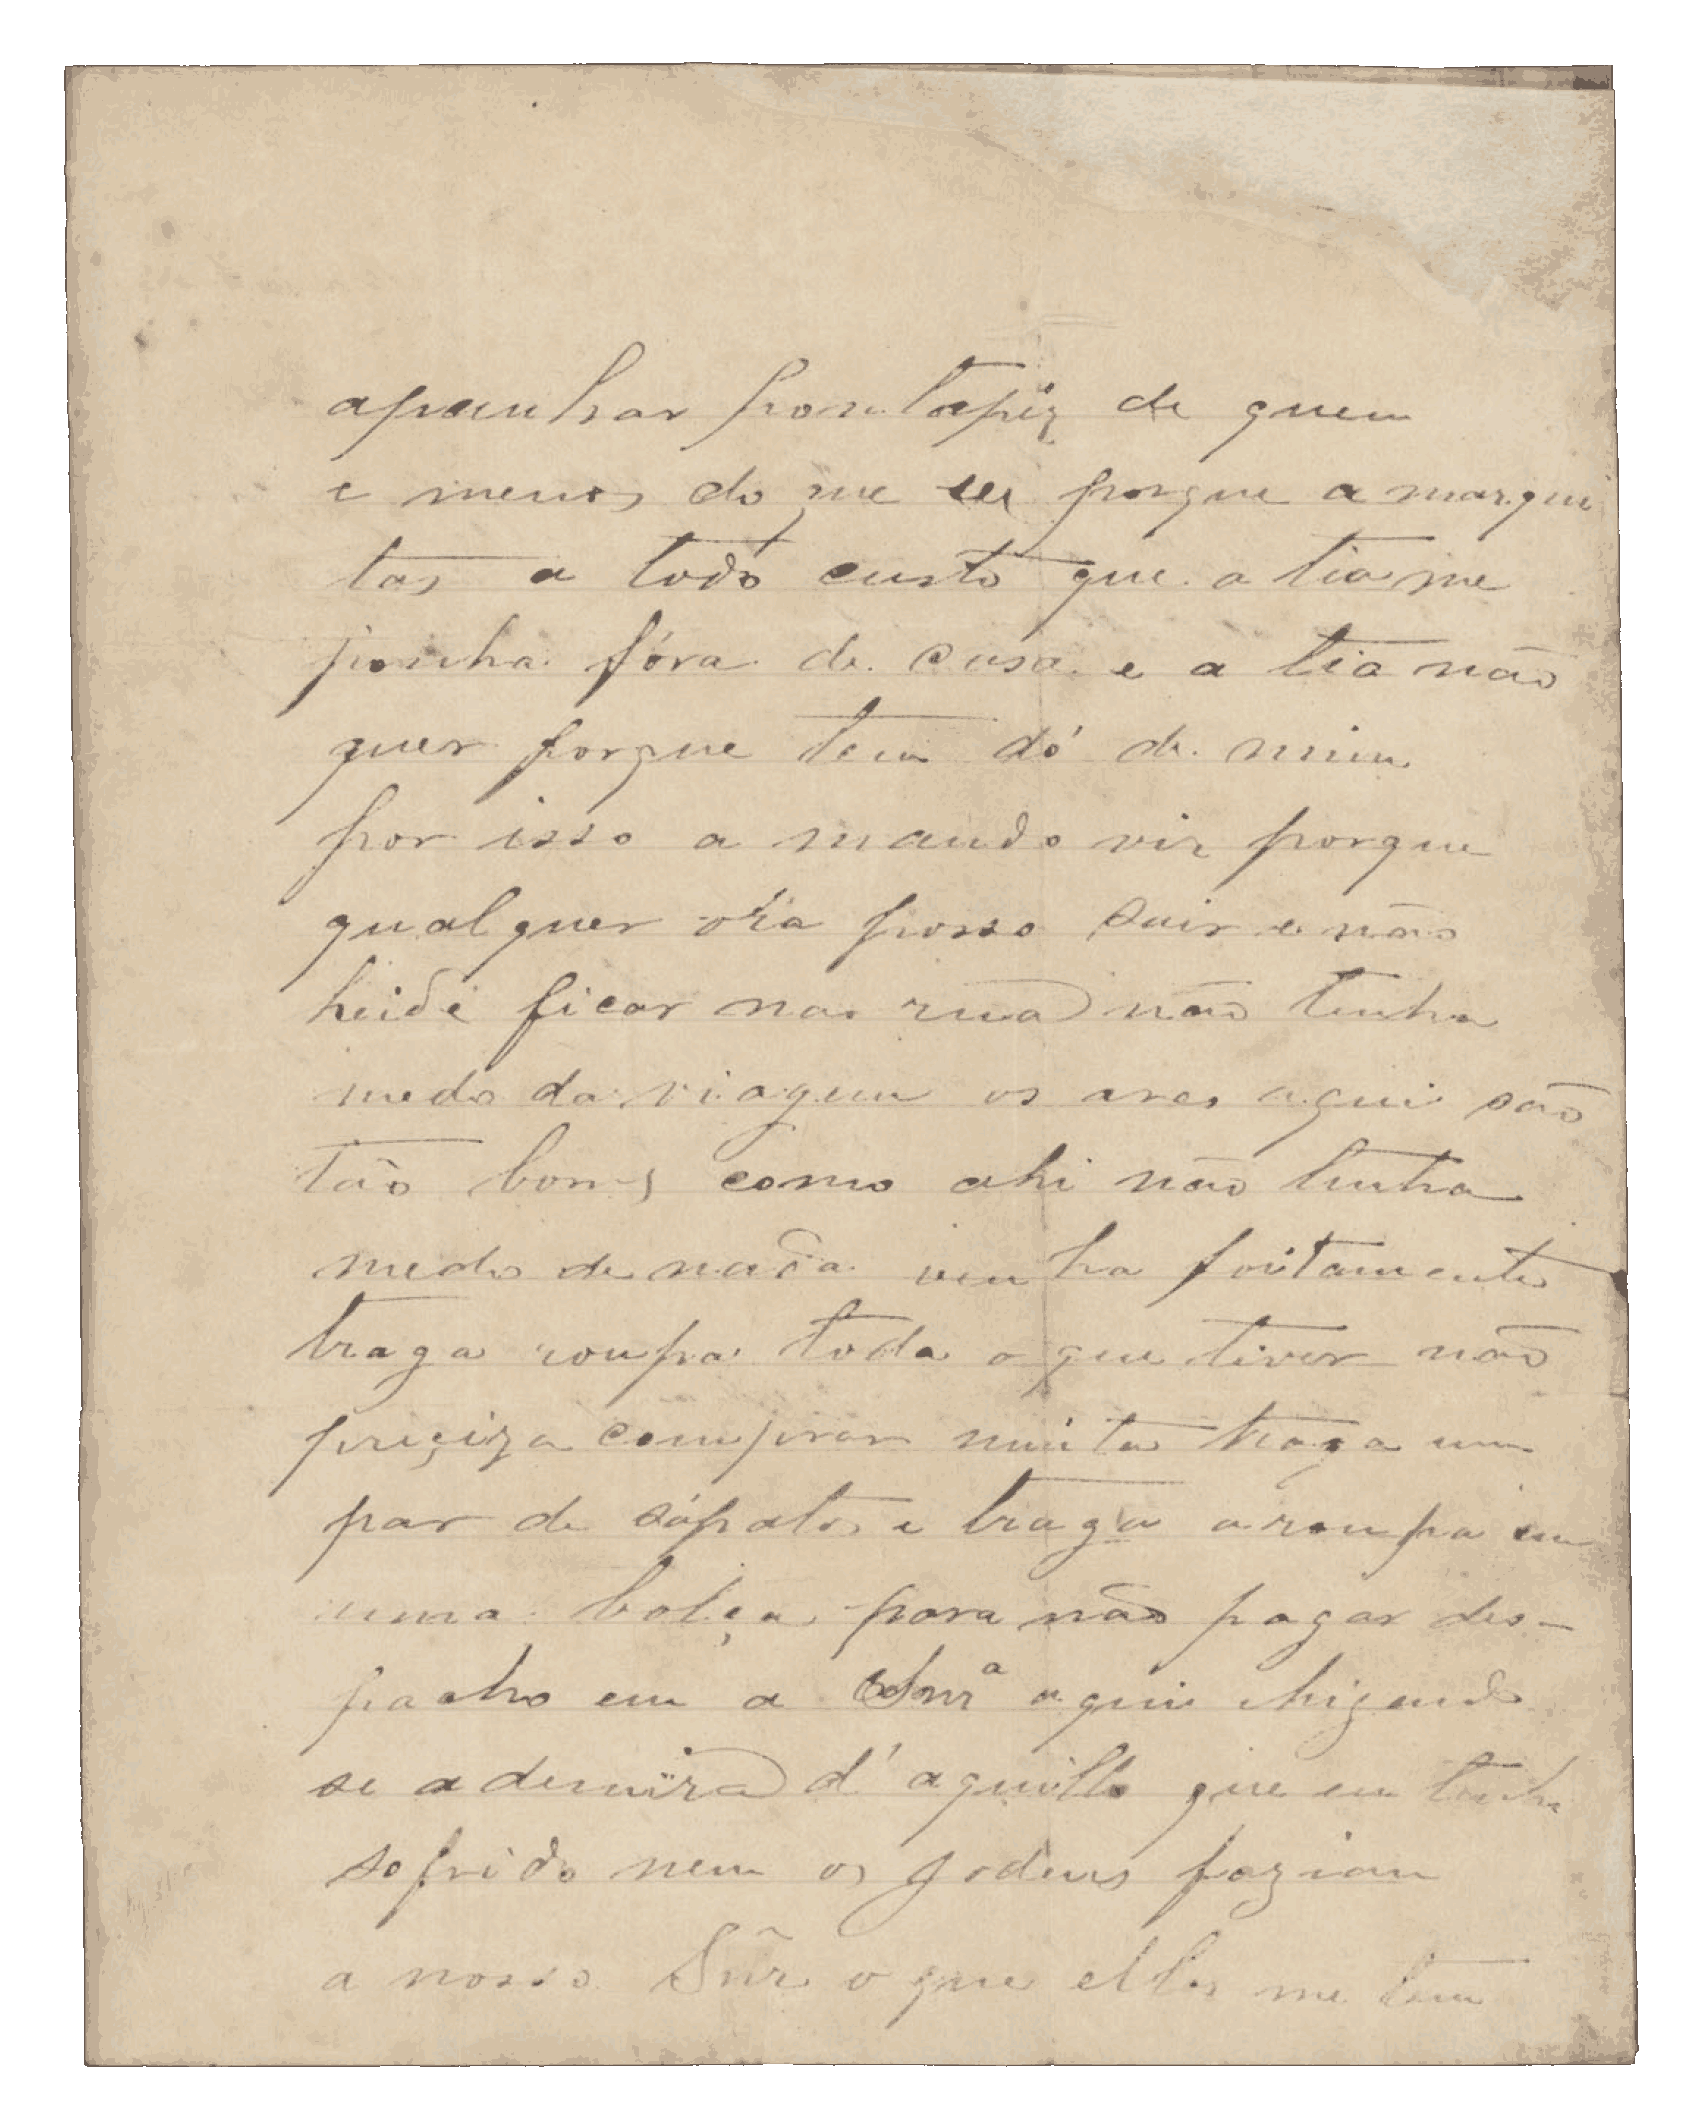 apanhar pontapiz de quem
e menos do que eu porque a marqui
tas a todo custo que a tia me
ponha fóra de casa e a tia não
quer porque tem dó de mim
por isso a mando vir porque
qualquer óra posso sair e não
heide ficar na rua não tenha
medo da viagem os ares aqui são
tão bons como ahi não tenha
medo de nada venha foutamente
traga roupa toda o que tiver não
preçiza comprar muita traga um
par de sápatos e traga a roupa em
uma bolça para não pagar des-
pacho em a Snrª aqui chigando
se ademira d'aquillo que eu tenh
sofrido nem os jodeus faziam
a nosso Snr o que elles me tem